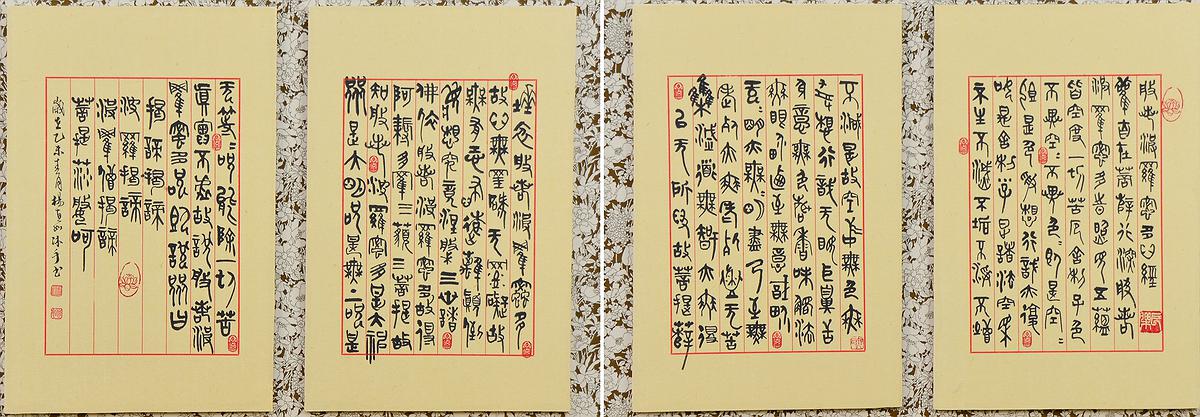 般若波羅密多心經
觀自在菩薩行深般若
波羅密多時照見五蘊
皆空度一切苦厄舍利子色
不異空〻不異色〻即是空〻
即是色受想行識亦復
如是舍利子是諸法空相
不生不滅不垢不淨不增
不減是故空中無色無
受想行識无眼耳鼻舌
身意無色聲香味觸法
無眼界乃至無意識界
无〻明亦無〻明盡乃至無
老死亦無老死盡无苦
集滅道無智亦無得
以无所得故菩提薩
埵依般若波羅密多
故心無罣礙无罣礙故
無有恐怖遠離顛倒
夢想究竟涅槃三世諸
佛依般若波羅密多故得
阿耨多羅三藐三菩提故
知般若波羅密多是大神
咒是大明咒是無上咒是
无等〻咒能除一切苦
真實不虛故說般若波
羅密多咒即說咒曰
揭諦揭諦
波羅揭諦
波羅僧揭諦
菩提薩婆呵
歲在乙未